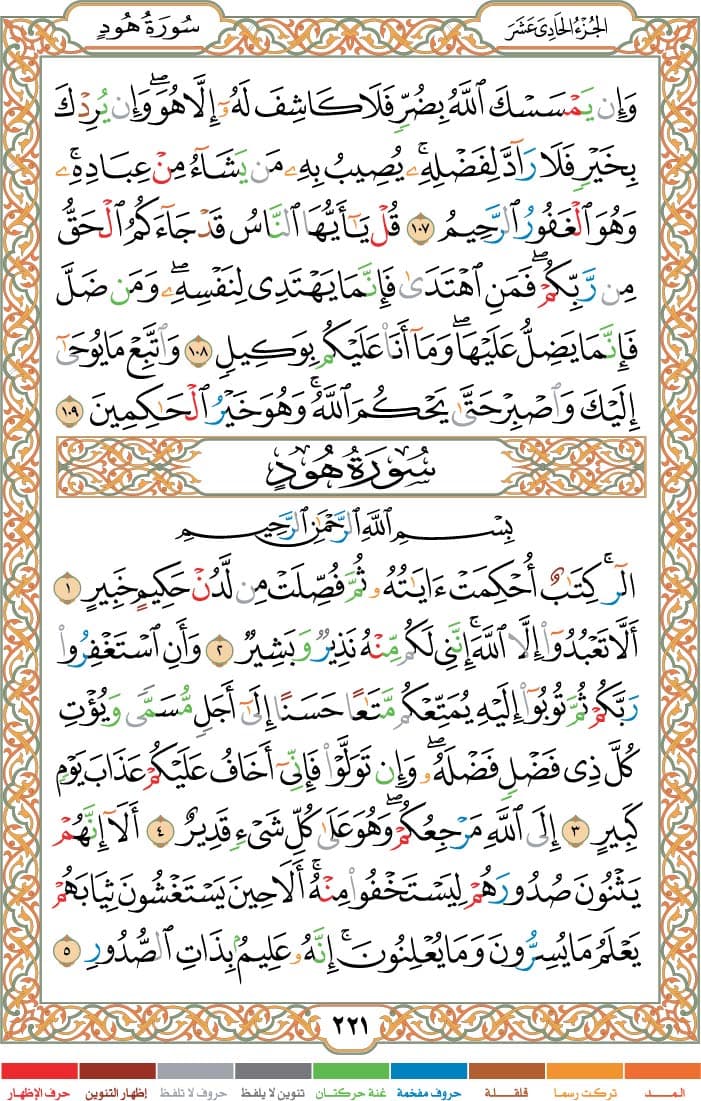 الجُزْءُ الحَادِي عَشَرَ
سُورَةُ هُودٍ
وَإِن يَمْسَسْكَ ٱللَّهُ بِضُرٍّ فَلَا كَاشِفَ لَهُۥٓ إِلَّا هُوَ ۖ وَإِن يُرِدْكَ
بِخَيْرٍ فَلَا رَآدَّ لِفَضْلِهِۦ ۚ يُصِيبُ بِهِۦ مَن يَشَآءُ مِنْ عِبَادِهِۦ ۚ
وَهُوَ ٱلْغَفُورُ ٱلرَّحِيمُ ١٠٧ قُلْ يَٰٓأَيُّهَا ٱلنَّاسُ قَدْ جَآءَكُمُ ٱلْحَقُّ
مِن رَّبِّكُمْ ۖ فَمَنِ ٱهْتَدَىٰ فَإِنَّمَا يَهْتَدِى لِنَفْسِهِۦ ۖ وَمَن ضَلَّ
فَإِنَّمَا يَضِلُّ عَلَيْهَا ۖ وَمَآ أَنَا۠ عَلَيْكُم بِوَكِيلٍ ١٠٨ وَٱتَّبِعْ مَا يُوحَىٰٓ
إِلَيْكَ وَٱصْبِرْ حَتَّىٰ يَحْكُمَ ٱللَّهُ ۚ وَهُوَ خَيْرُ ٱلْحَٰكِمِينَ ١٠٩
سُورَةُ هُودٍ
بِسْمِ ٱللَّهِ ٱلرَّحْمَٰنِ ٱلرَّحِيمِ
الٓر ۚ كِتَٰبٌ أُحْكِمَتْ ءَايَٰتُهُۥ ثُمَّ فُصِّلَتْ مِن لَّدُنْ حَكِيمٍ خَبِيرٍ ١
أَلَّا تَعْبُدُوٓا۟ إِلَّا ٱللَّهَ ۚ إِنَّنِى لَكُم مِّنْهُ نَذِيرٌ وَبَشِيرٌ ٢ وَأَنِ ٱسْتَغْفِرُوا۟
رَبَّكُمْ ثُمَّ تُوبُوٓا۟ إِلَيْهِ يُمَتِّعْكُم مَّتَٰعًا حَسَنًا إِلَىٰٓ أَجَلٍ مُّسَمًّى وَيُؤْتِ
كُلَّ ذِى فَضْلٍ فَضْلَهُۥ ۖ وَإِن تَوَلَّوْا۟ فَإِنِّىٓ أَخَافُ عَلَيْكُمْ عَذَابَ يَوْمٍ
كَبِيرٍ ٣ إِلَى ٱللَّهِ مَرْجِعُكُمْ ۖ وَهُوَ عَلَىٰ كُلِّ شَىْءٍ قَدِيرٌ ٤ أَلَآ إِنَّهُمْ
يَثْنُونَ صُدُورَهُمْ لِيَسْتَخْفُوا۟ مِنْهُ ۚ أَلَا حِينَ يَسْتَغْشُونَ ثِيَابَهُمْ
يَعْلَمُ مَا يُسِرُّونَ وَمَا يُعْلِنُونَ ۚ إِنَّهُۥ عَلِيمٌۢ بِذَاتِ ٱلصُّدُورِ ٥
٢٢١
المـــد
تركت رسما
قلقـلة
حروف مفخمة
غنة حركتـان
تنوين لا يلفظ
حروف لا تلفظ
إظهار التنوين
حرف الإظهار